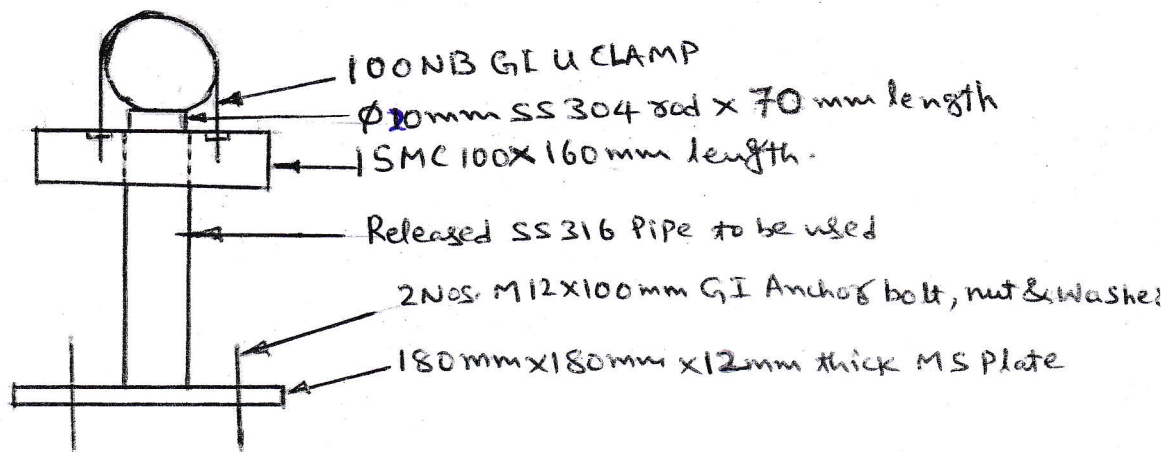 100NB GI U CLAMP
Ø20mm SS 304 rod x 70 mm length
ISMC 100X160mm length.
Released SS316 Pipe to be used
2Nos. M12X100mm GI Anchor bolt, nut & Washer
180mmx180mm x12mm thick MS Plate